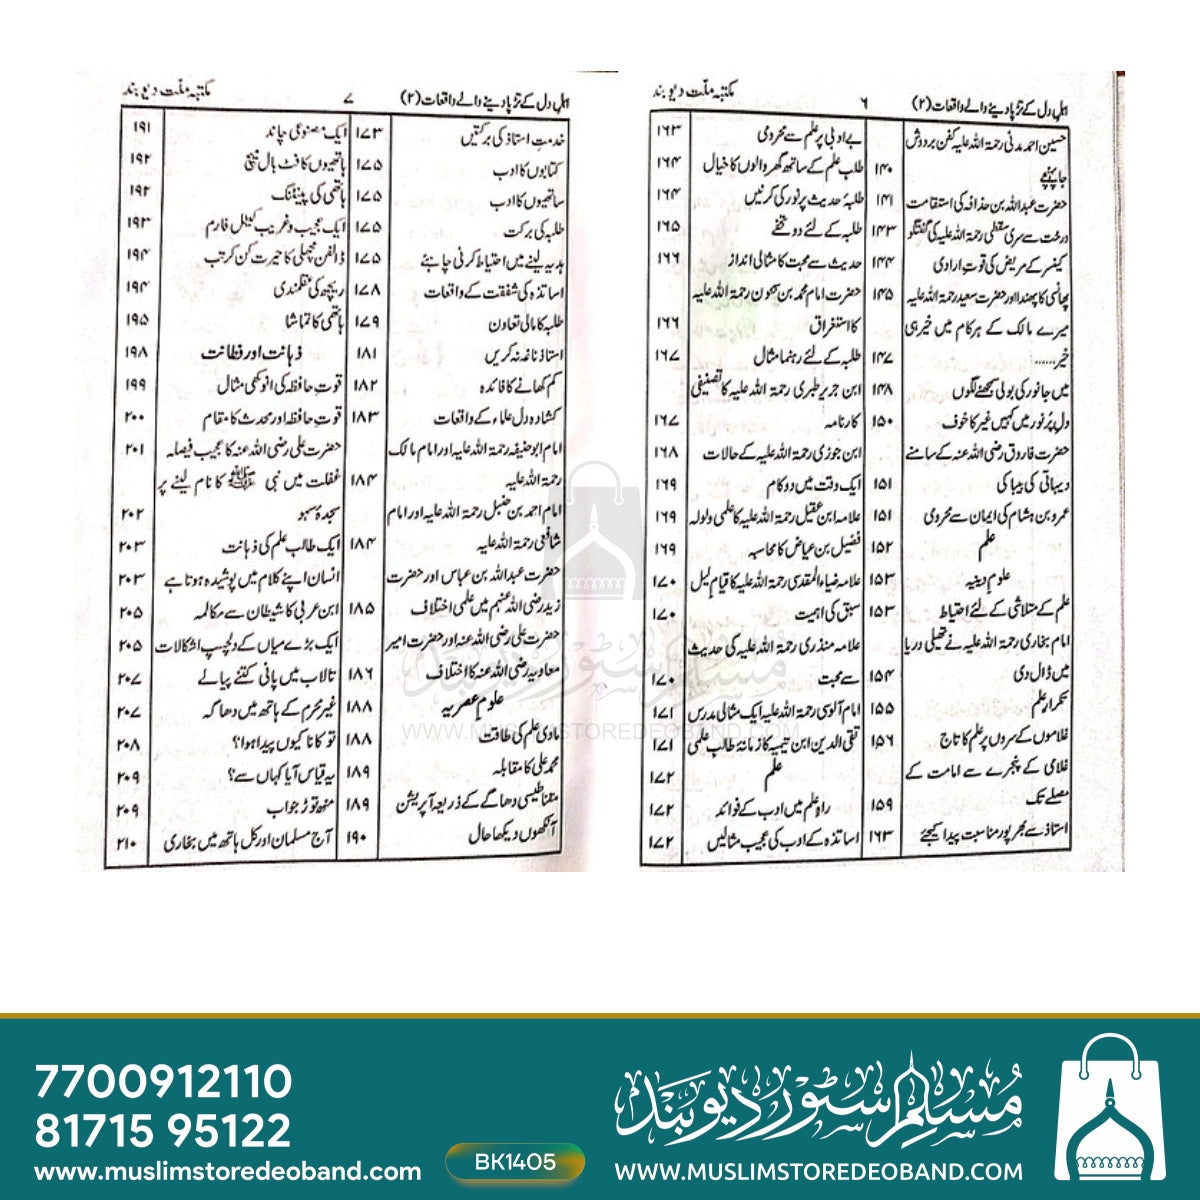 اہل دل کے تڑپا دینے والے واقعات (۲) ۶ مکتبہ ملّت دیوبند
حسین احمد مدنی رحمۃ اللہ علیہ کفن بردوش
جا پہنچے ۱۴۰
حضرت عبداللہ بن حذافہ کی استقامت ۱۴۱
درخت سے سری سقطی رحمۃ اللہ علیہ کی گفتگو ۱۴۳
کینسر کے مریض کی قوتِ ارادی ۱۴۴
پھانسی کا پھندا اور حضرت سعید رحمۃ اللہ علیہ ۱۴۵
میرے مالک کے ہر کام میں خیر ہی
خیر...... ۱۴۷
میں جانور کی بولی سمجھنے لگوں ۱۴۸
دلِ پُر نور میں کہیں غیر کا خوف ۱۵۰
حضرت فاروق رضی اللہ عنہ کے سامنے
دیہاتی کی بیباکی ۱۵۱
عمرو بن ہشام کی ایمان سے محرومی ۱۵۱
علم ۱۵۲
علوم دینیہ ۱۵۳
علم کے متلاشی کے لئے احتیاط ۱۵۳
امام بخاری رحمۃ اللہ علیہ نے تھیلی دریا
میں ڈال دی ۱۵۴
تکرار علم ۱۵۵
غلاموں کے سروں پر علم کا تاج ۱۵۶
غلامی کے پنجرے سے امامت کے
مصلے تک ۱۵۹
استاذ سے بھرپور مناسبت پیدا کیجئے ۱۶۳
بے ادبی پر علم سے محرومی ۱۶۳
طلب علم کے ساتھ گھر والوں کا خیال ۱۶۴
طلبۂ حدیث پر نور کی کرنیں ۱۶۴
طلبہ کے لئے دو تحفے ۱۶۵
حدیث سے محبت کا مثالی انداز ۱۶۶
حضرت امام محمد بن سحنون رحمۃ اللہ علیہ
کا استغراق ۱۶۶
طلبہ کے لئے رہنما مثال ۱۶۷
ابن جریر طبری رحمۃ اللہ علیہ کا تصنیفی
کارنامہ ۱۶۷
ابن جوزی رحمۃ اللہ علیہ کے حالات ۱۶۸
ایک وقت میں دو کام ۱۶۹
علامہ ابن عقیل رحمۃ اللہ علیہ کا علمی ولولہ ۱۶۹
فضیل بن عیاض کا محاسبہ ۱۶۹
علامہ ضیاء المقدسی رحمۃ اللہ علیہ کا قیام لیل ۱۷۰
سبق کی اہمیت ۱۷۰
علامہ منذری رحمۃ اللہ علیہ کی حدیث
سے محبت ۱۷۰
امام آلوسی رحمۃ اللہ علیہ ایک مثالی مدرس ۱۷۱
تقی الدین ابن تیمیہ کا زمانۂ طالب علمی ۱۷۱
علم ۱۷۲
راہِ علم میں ادب کے فوائد ۱۷۲
اساتذہ کے ادب کی عجیب مثالیں ۱۷۲
اہل دل کے تڑپا دینے والے واقعات (۲) ۷ مکتبہ ملّت دیوبند
خدمتِ استاذ کی برکتیں ۱۷۳
کتابوں کا ادب ۱۷۵
ساتھیوں کا ادب ۱۷۵
طلبہ کی برکت ۱۷۵
ہدیہ لینے میں احتیاط کرنی چاہئے ۱۷۵
اساتذہ کی شفقت کے واقعات ۱۷۸
طلبہ کا مالی تعاون ۱۷۹
استاذ ناغہ نہ کریں ۱۸۱
کم کھانے کا فائدہ ۱۸۲
کشادہ دل علماء کے واقعات ۱۸۳
امام ابوحنیفہ رحمۃ اللہ علیہ اور امام مالک
رحمۃ اللہ علیہ ۱۸۴
امام احمد بن حنبل رحمۃ اللہ علیہ اور امام
شافعی رحمۃ اللہ علیہ ۱۸۴
حضرت عبداللہ بن عباس اور حضرت
زید رضی اللہ عنہم میں علمی اختلاف ۱۸۵
حضرت علی رضی اللہ عنہ اور حضرت امیر
معاویہ رضی اللہ عنہ کا اختلاف ۱۸۶
علوم عصریہ ۱۸۸
مادی علم کی طاقت ۱۸۸
محمد علی کا مقابلہ ۱۸۹
مقناطیسی دھاگے کے ذریعہ آپریشن ۱۸۹
آنکھوں دیکھا حال ۱۹۰
ایک مصنوعی چاند ۱۹۱
ہاتھیوں کا فٹ بال میچ ۱۹۲
ہاتھی کی پینٹنگ ۱۹۲
ایک عجیب و غریب کیٹل فارم ۱۹۳
ڈالفن مچھلی کا حیرت کن کرتب ۱۹۴
ریچھ کی عقلمندی ۱۹۴
ہاتھی کا تماشا ۱۹۵
ذہانت اور فطانت ۱۹۸
قوت حافظہ کی انوکھی مثال ۱۹۹
قوت حافظہ اور محدث کا مقام ۲۰۰
حضرت علی رضی اللہ عنہ کا عجیب فیصلہ ۲۰۱
غفلت میں نبی ﷺ کا نام لینے پر
سجدہ سہو ۲۰۲
ایک طالب علم کی ذہانت ۲۰۳
انسان اپنے کلام میں پوشیدہ ہوتا ہے ۲۰۳
ابن عربی کا شیطان سے مکالمہ ۲۰۵
ایک بڑے میاں کے دلچسپ اشکالات ۲۰۵
تالاب میں پانی کتنے پیالے ۲۰۷
غیر محرم کے ہاتھ میں دھاگہ ۲۰۷
تو کانا کیوں پیدا ہوا؟ ۲۰۸
یہ قیاس آیا کہاں سے؟ ۲۰۹
منھ توڑ جواب ۲۰۹
آج مسلمان اور کل ہاتھ میں بخاری ۲۱۰
مسلم سٹور دیوبند
WWW.MUSLIMSTOREDEOBAND.COM
7700912110
81715 95122
www.muslimstoredeoband.com
BK1405
مسلم سٹور دیوبند
WWW.MUSLIMSTOREDEOBAND.COM